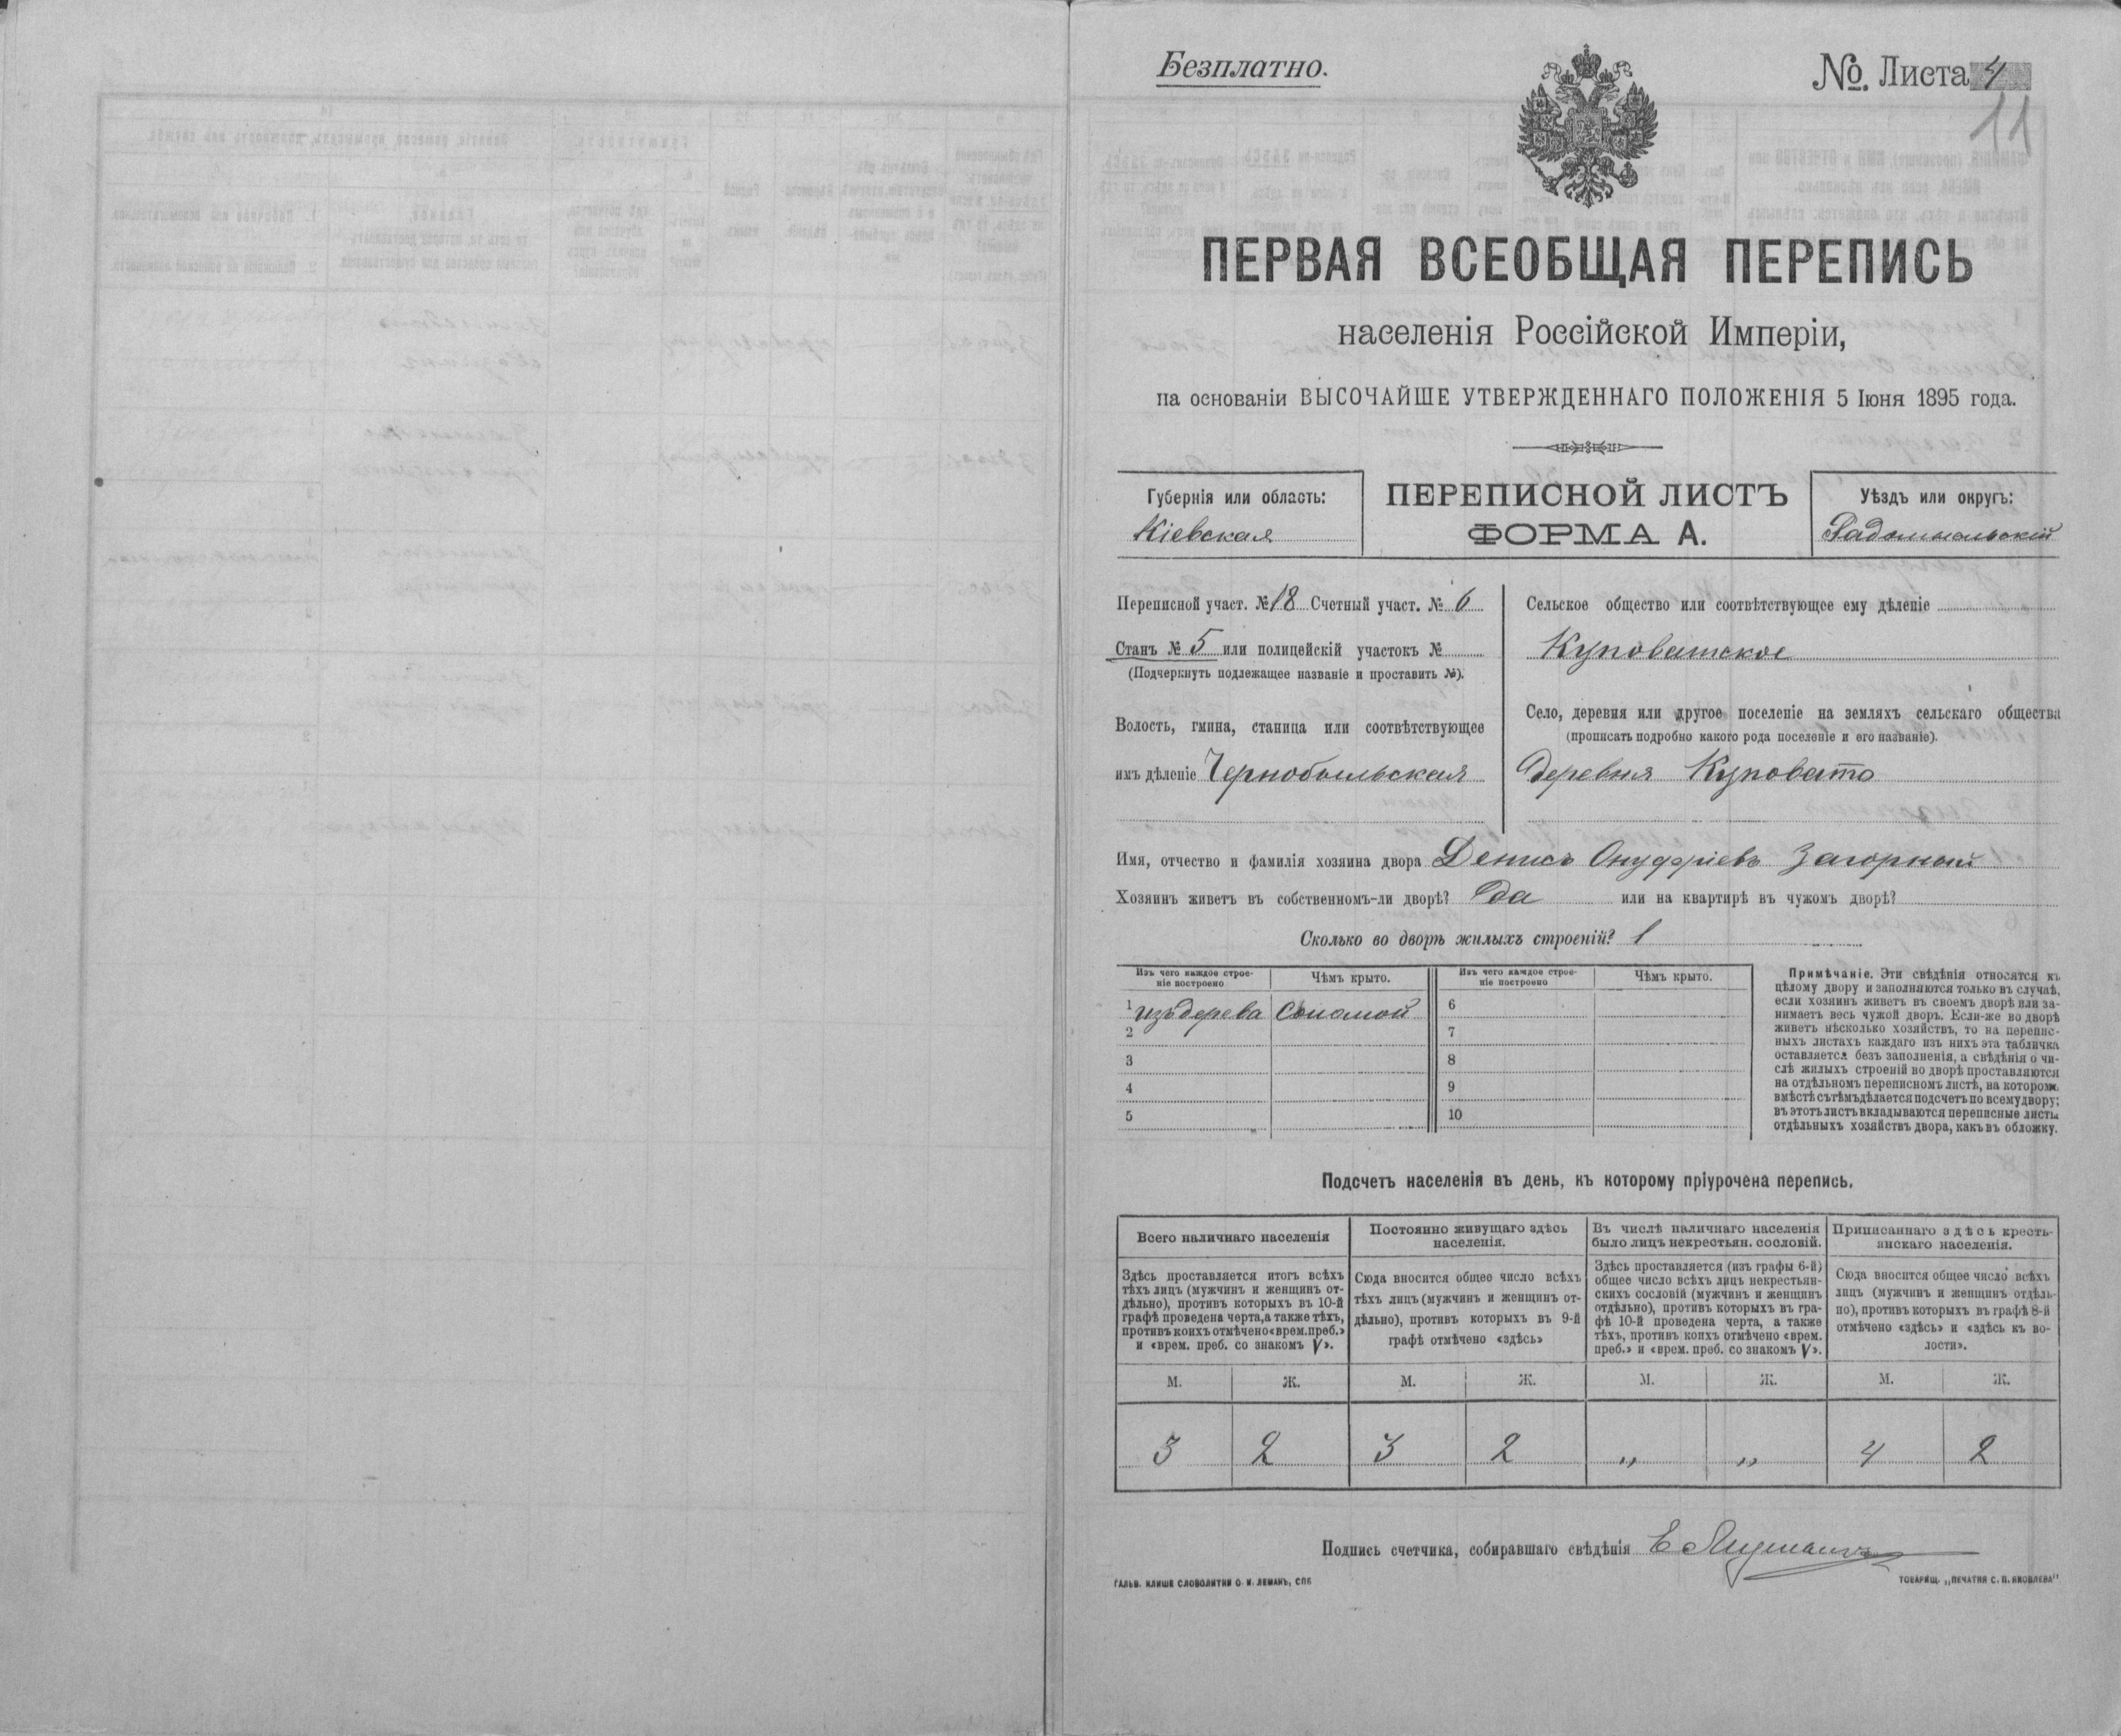 Безплатно.
№. Листа 4
11
ПЕРВАЯ ВСЕОБЩАЯ ПЕРЕПИСЬ
населенія Россійской Имперіи,
на основаніи ВЫСОЧАЙШЕ УТВЕРЖДЕННАГО ПОЛОЖЕНІЯ 5 Іюня 1895 года.
Губернія или область:
Кіевская
ПЕРЕПИСНОЙ ЛИСТЪ
ФОРМА А.
Уѣздъ или округъ:
Радомысльскій
Переписной участ. № 18 Счетный участ. № 6
Станъ № 5 или полицейскій участокъ №
(Подчеркнуть подлежащее названіе и проставить №).
Волость, гмина, станица или соотвѣтствующее
имъ дѣленіе Чернобыльская
Сельское общество или соотвѣтствующее ему дѣленіе
Куповатское
Село, деревня или другое поселеніе на земляхъ сельскаго общества
(прописать подробно какого рода поселеніе и его названіе).
Деревня Куповато
Имя, отчество и фамилія хозяина двора Денисъ Онуфріевъ Загорный
Хозяинъ живетъ въ собственномъ-ли дворѣ? Да или на квартирѣ въ чужомъ дворѣ?
Сколько во дворѣ жилыхъ строеній? 1
Изъ чего каждое строе-
ніе построено
Чѣмъ крыто.
Изъ чего каждое строе-
ніе построено
Чѣмъ крыто.
1 изъ дерева Соломой
2
3
4
5
6
7
8
9
10
Примѣчаніе. Эти свѣдѣнія относятся къ
цѣлому двору и заполняются только въ случаѣ,
если хозяинъ живетъ въ своемъ дворѣ или за-
нимаетъ весь чужой дворъ. Если-же во дворѣ
живетъ нѣсколько хозяйствъ, то на перепис-
ныхъ листахъ каждаго изъ нихъ эта табличка
оставляется безъ заполненія, а свѣдѣнія о чи-
слѣ жилыхъ строеній во дворѣ проставляются
на отдѣльномъ переписномъ листѣ, на которомъ
вмѣстѣ съ тѣмъ дѣлается подсчетъ по всему двору;
въ этотъ листъ вкладываются переписные листы
отдѣльныхъ хозяйствъ двора, какъ въ обложку.
Подсчетъ населенія въ день, къ которому пріурочена перепись.
Всего наличнаго населенія
Здѣсь проставляется итогъ всѣхъ
тѣхъ лицъ (мужчинъ и женщинъ от-
дѣльно), противъ которыхъ въ 10-й
графѣ проведена черта, а также тѣхъ,
противъ коихъ отмѣчено «врем. преб.»
и «врем. преб. со знакомъ V».
Постоянно живущаго здѣсь
населенія.
Сюда вносится общее число всѣхъ
тѣхъ лицъ (мужчинъ и женщинъ от-
дѣльно), противъ которыхъ въ 9-й
графѣ отмѣчено «здѣсь»
Въ числѣ наличнаго населенія
было лицъ некрестьян. сословій.
Здѣсь проставляется (изъ графы 6-й)
общее число всѣхъ лицъ некрестьян-
скихъ сословій (мужчинъ и женщинъ
отдѣльно), противъ которыхъ въ гра-
фѣ 10-й проведена черта, а также
тѣхъ, противъ коихъ отмѣчено «врем.
преб.» и «врем. преб. со знакомъ V».
Приписаннаго здѣсь кресть-
янскаго населенія.
Сюда вносится общее число всѣхъ
лицъ (мужчинъ и женщинъ отдѣль-
но), противъ которыхъ въ графѣ 8-й
отмѣчено «здѣсь» и «здѣсь къ во-
лости».
М. Ж. М. Ж. М. Ж. М. Ж.
3 2 3 2 „ „ 4 2
Подпись счетчика, собиравшаго свѣдѣнія Е
ГАЛЬВ. КЛИШЕ СЛОВОЛИТНИ О. И. ЛЕМАНЪ, СПБ
ТОВАРИЩ. „ПЕЧАТНЯ С. П. ЯКОВЛЕВА"